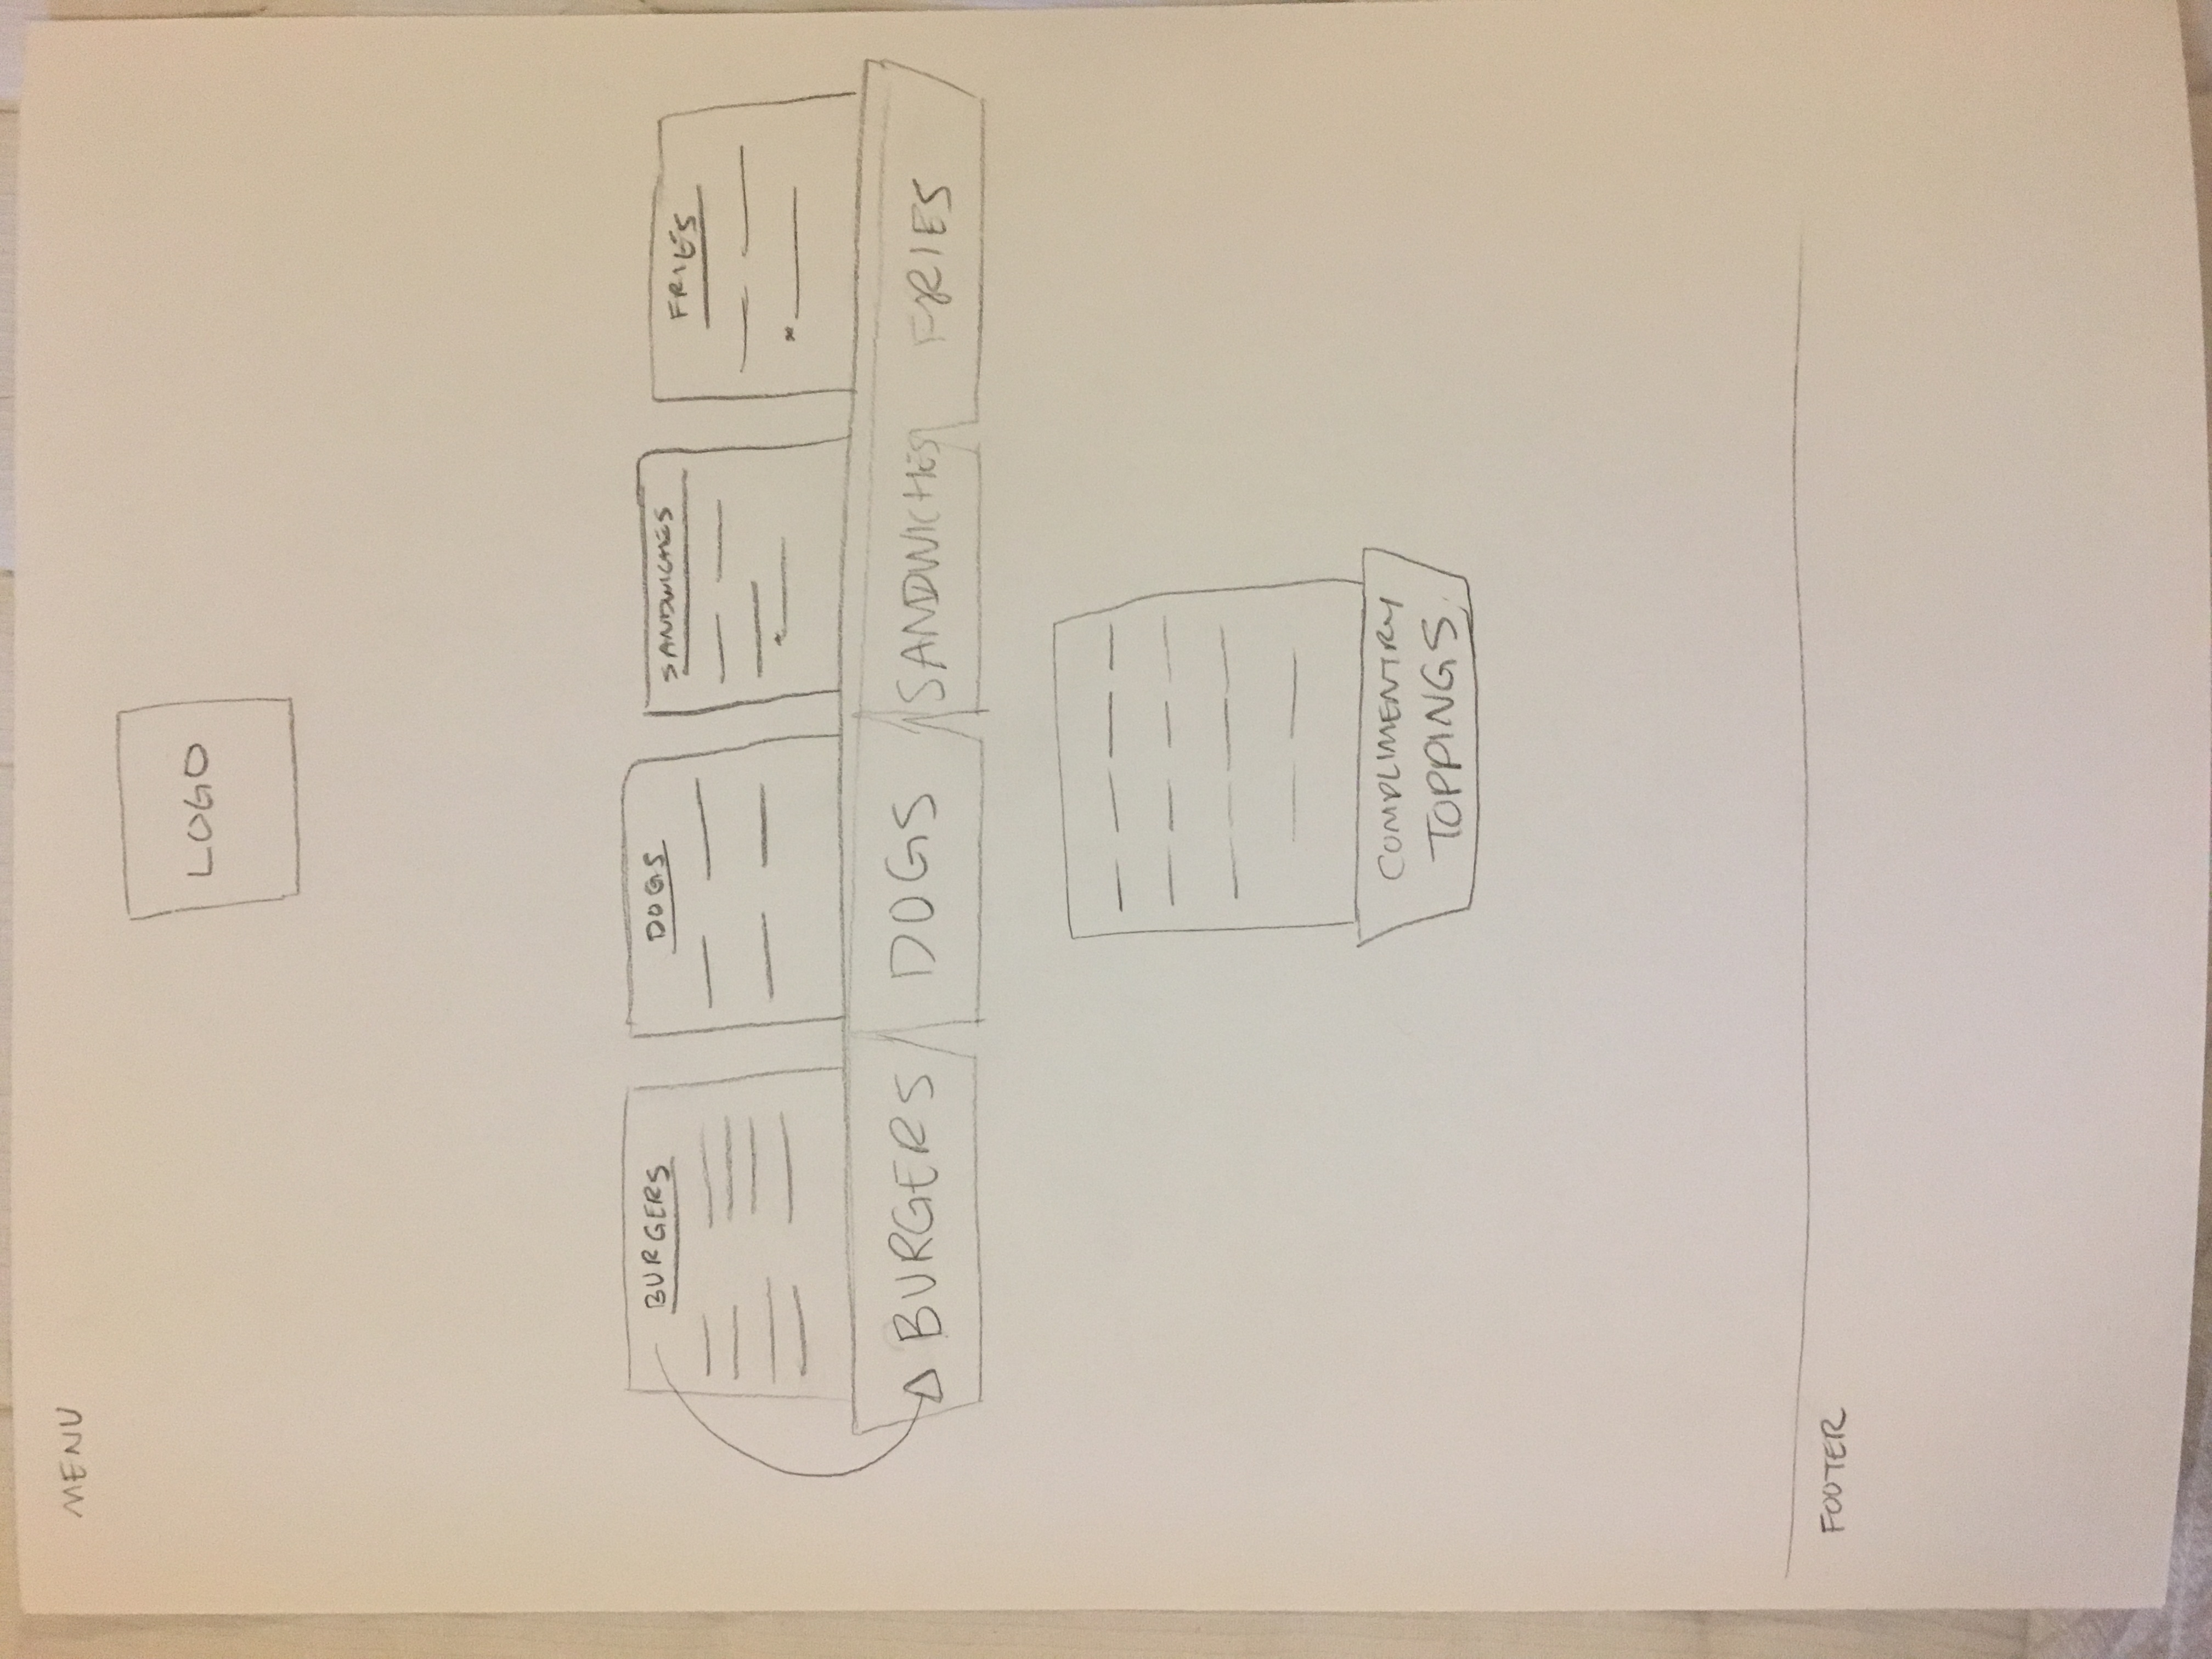 MENU
LOGO
BURGERS
DOGS
SANDWICHES
FRIES
BURGERS
DOGS
SANDWICHES
FRIES
COMPLIMENTRY
TOPPINGS
FOOTER